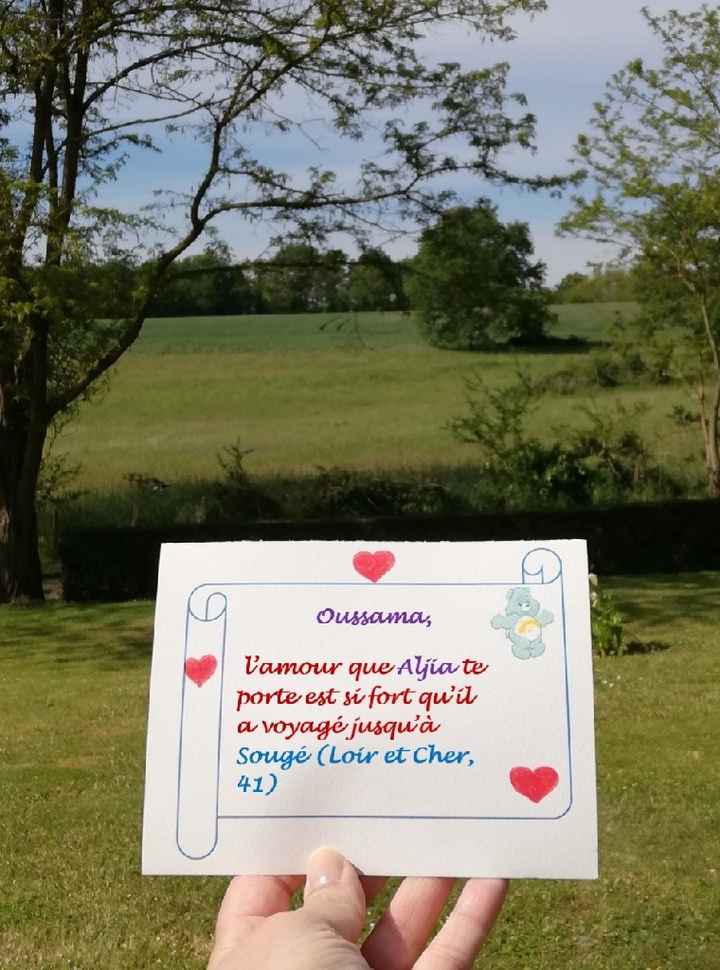 Oussama,
l'amour que Aljia te
porte est si fort qu'il
a voyagé jusqu'à
Sougé (Loir et Cher,
41)